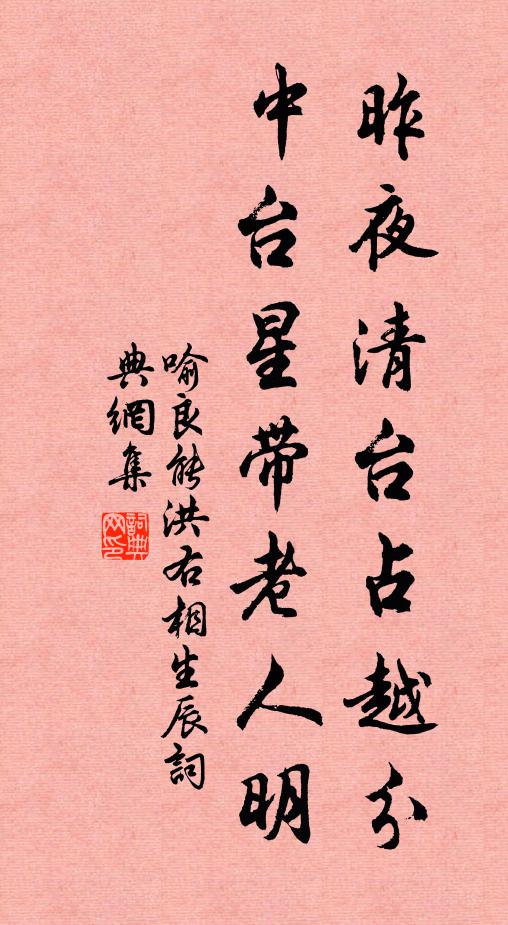 昨夜清台占越分
中台星带老人明
喻良能洪右相生辰詞
典網集
詞典网印